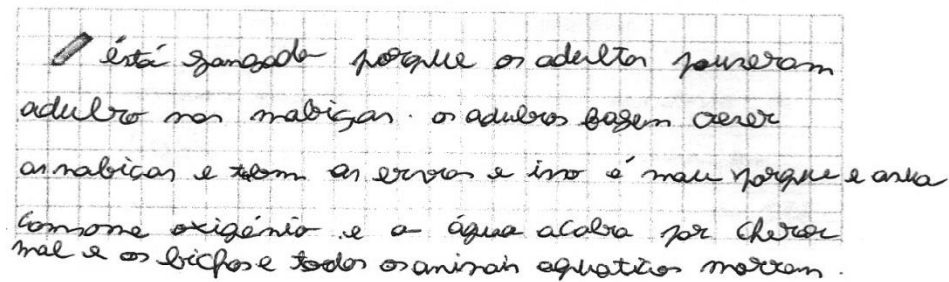 está zangado porque os adultos puseram
adulbro nas nabiças. os adulbros fazem crescer
as nabiças e tem as ervas e isso é mau porque e
consome oxigénio e a água acaba por cheirar
mal e os bichos e todos os animais aquáticos morrem.